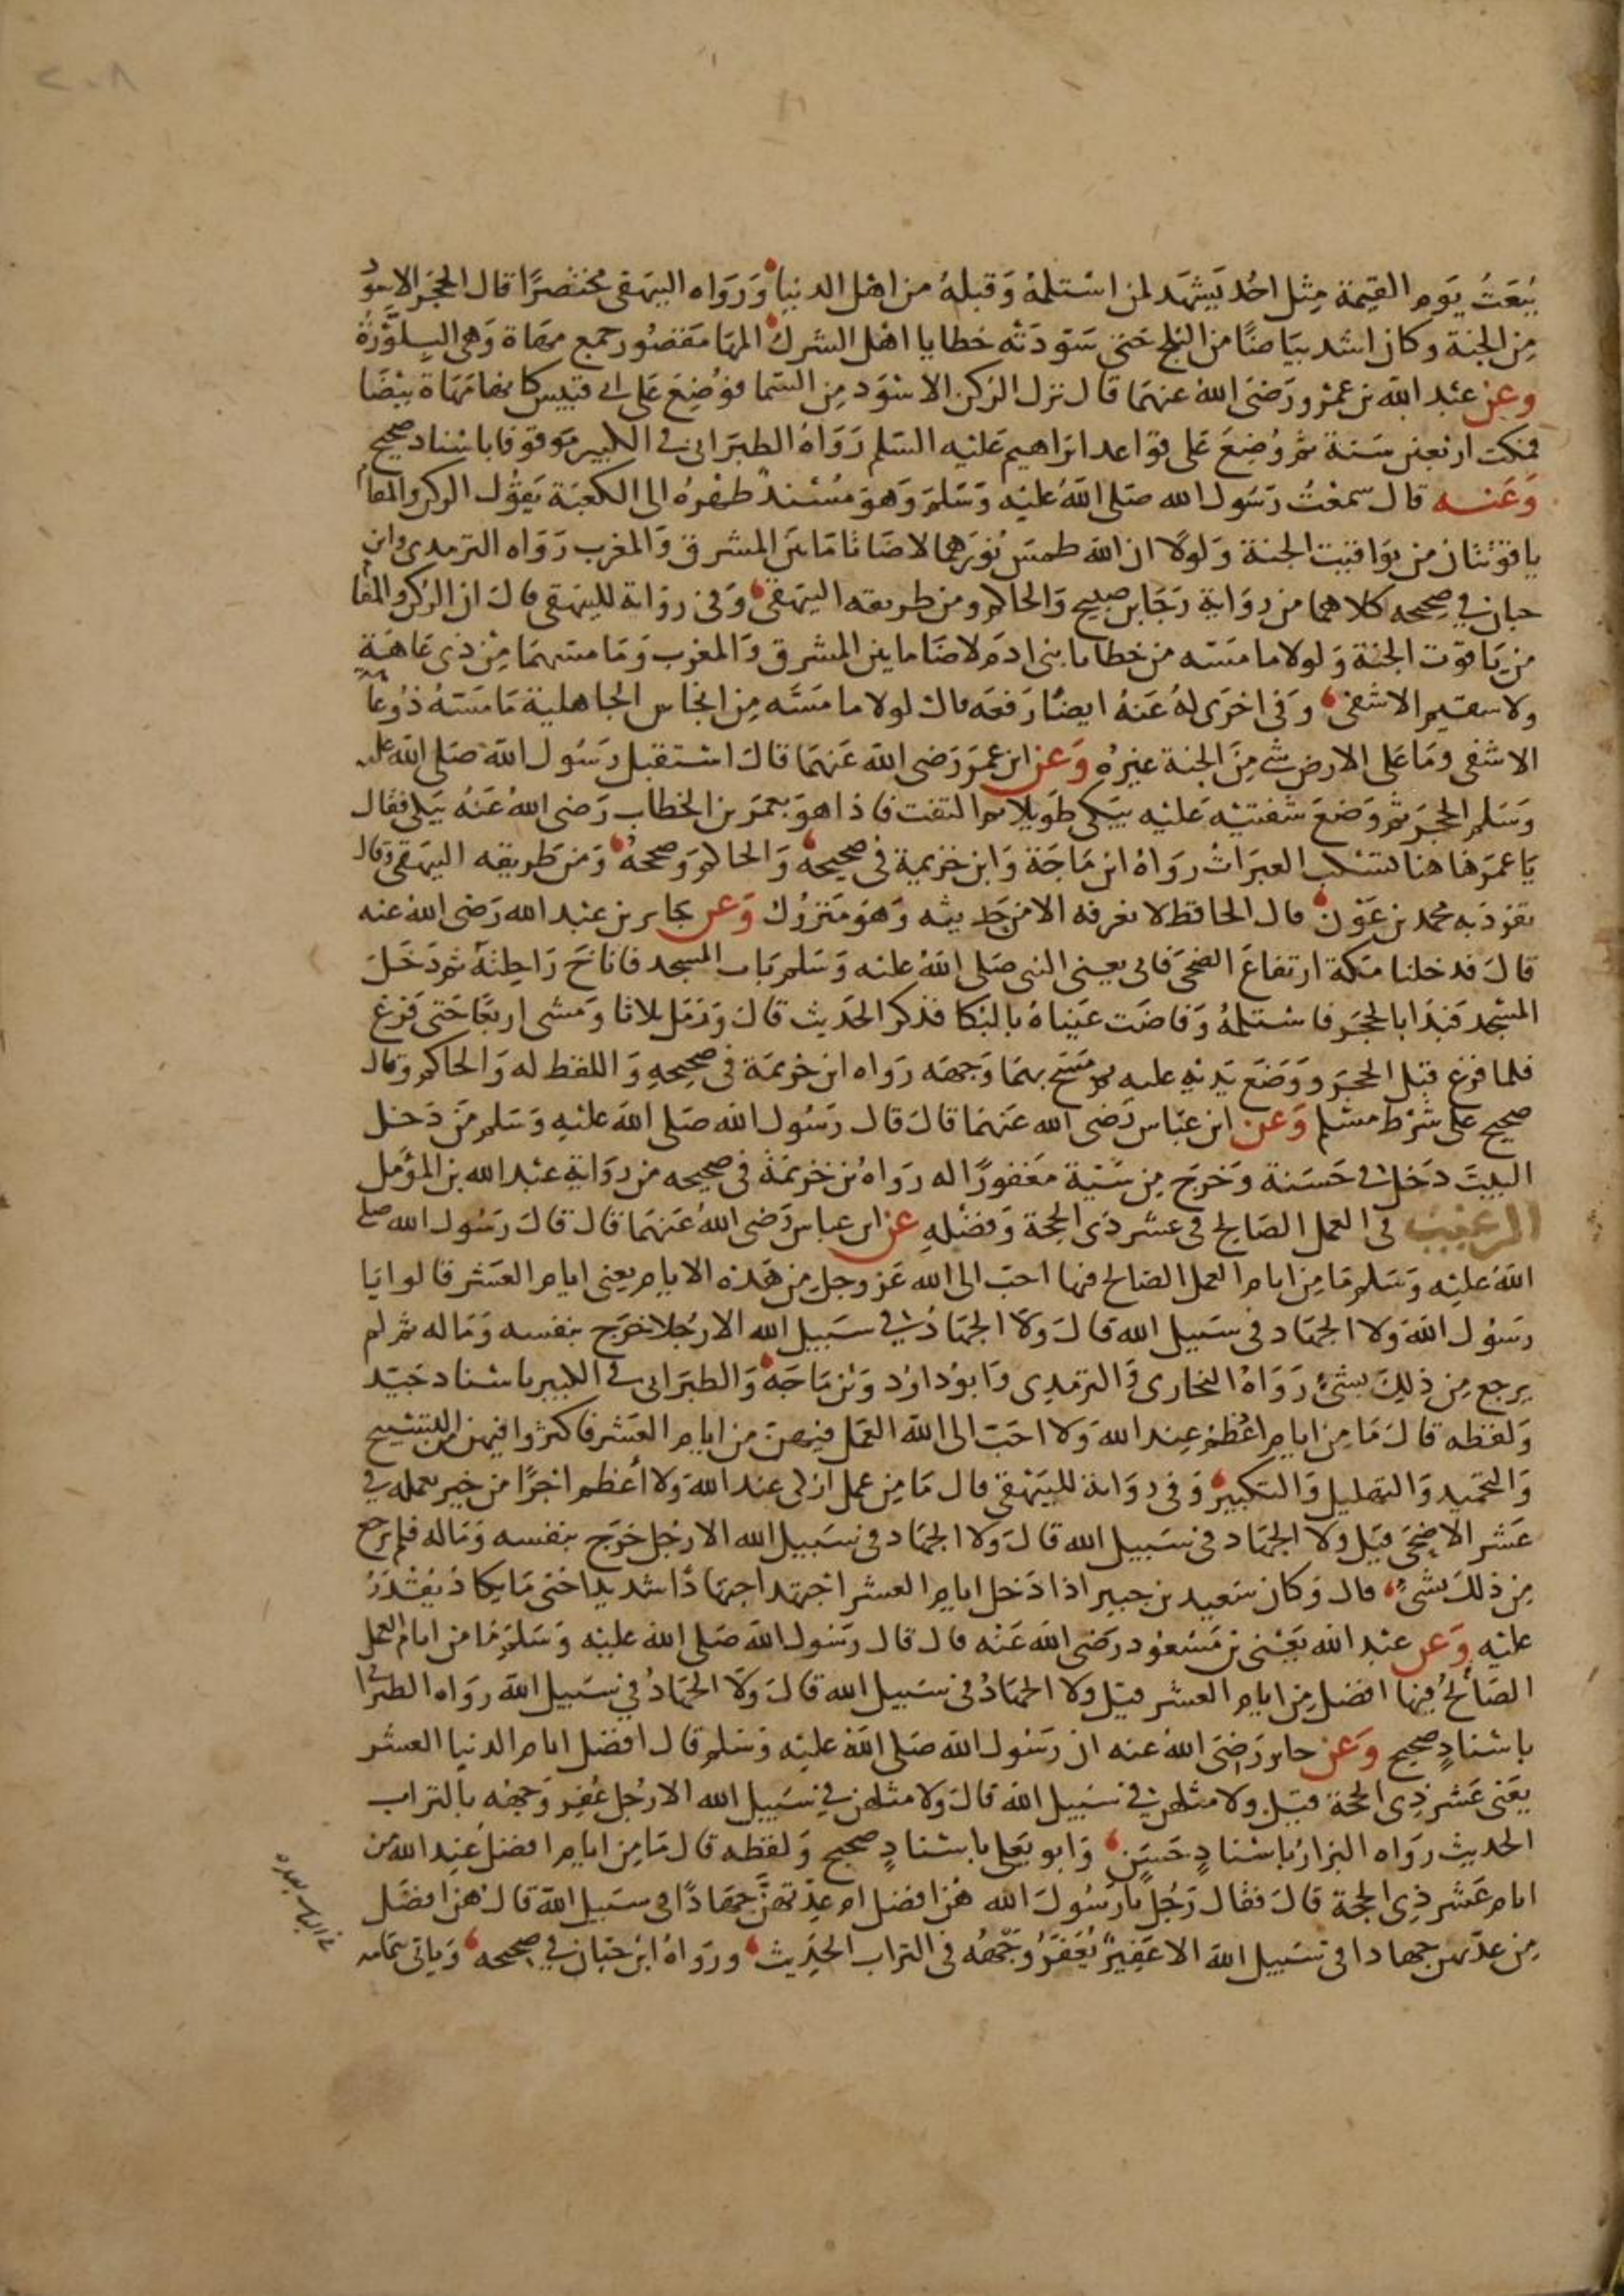 ٢٠٨
يُبعَثُ يَوم القيمة مِثل احُد يَشهَد لمن استلمهُ وَقبلهُ من اهل الدنيا وَرَوَاه البيهقى مختصرًا قال الحجَر الاسوَد
مِن الجنة وكان اشد بيَاضًا من الثلج حَتى سَوّدَته خطايا اهل الشرك المهَا مَقصُور جمع مهَاة وَهى البِلَّوْرَةُ
وعن عبْد الله بن عمْرو رَضىَ اللهُ عنهمَا قال نزل الركن الاسْوَد مِن السَّما فوُضِعَ عَلى ابى قبَيس كانها مَهَاة بيْضَا
فمكث اربَعين سَنة ثم وُضِعَ عَلى قوَاعد ابرَاهيم عَليْه السَلم رَوَاهُ الطبَرَانى فى الكبير مَوقوفا باسْناد صحيح
وَعَنه قال سَمعْتُ رَسُول الله صَلى اللهُ عَليْه وَسَلم وَهوَ مُسْندٌ ظهْرهُ الى الكعبَة يَقوُل الركن والمقام
ياقوْتتان من يوَاقيت الجنة وَلولا ان الله طمسَ نُورَهما لاضَاتا مَا بَين المشرق وَالمغرب رَوَاه الترمدى وابن
حبان فى صحيحه كلاهما من روَاية رَجَا بن صبيح وَالحاكم ومن طريقه البيهقى وَفى روَاية للبيهَقى قال ان الركن والمقا
من يَاقوت الجنة وَلولا ما مَسّه من خطايا بنى ادَم لاضَا ما بين المشرق وَالمغرب وَمَا مسّهمَا مِن ذى عَاهَةٍ
ولا سقيم الا شفى وَفى اخرَى لهُ عَنهُ ايضًا رَفعَه قال لولا ما مَسَّه مِن انجَاس الجاهلية مَا مَسّهُ ذوُ عَاهة
الا شفى ومَا عَلى الارض شى مِنَ الجنة غيرهُ وَعَن ابن عمَر رَضى الله عَنهمَا قالَ استقبل رَسُول الله صَلى الله عليه
وَسَلم الحجَر ثم وَضعَ شفتيْه عَليْه يَبكى طويلا ثم التفت فاذا هوَ بعمَر بن الخطاب رَضى اللهُ عَنهُ يَبكى فقال
يَا عمَر هَاهنا تسْكب العبَرَاتُ روَاهُ ابن مَاجَة وَابن خزيمة فى صحيحه وَالحاكم وَصححهُ وَمن طريقه البيهَقى وقال
تفرّد به محمد بن عَوْن قال الحافظ لا نعرفه الا من حَديثه وَهوَ مَتروُك وَعن جَابر بن عبْد الله رَضى اللهُ عنه
قالَ فدخلنا مكة ارتفاعَ الضحَى فاتى يعنى النبى صَلى اللهُ عليه وَسَلم بَاب المسجد فاناخَ رَاحِلتَهُ ثم دَخَلَ
المسْجد فبَدَا بالحجَر فاسْتلمهُ وَفاضَت عَينَاهُ بالبُكا فذكر الحَديث قالَ وَرَمَل ثلاثا وَمشى اربعًا حَتى فرَغ
فلما فرَغ قبّل الحجَر وَوَضَع يَديْهِ عليه ثم مَسَح بهمَا وَجهَه رَوَاه ابن خزيمَة فى صحيحهِ وَاللفظ له وَالحاكم وقال
صحيح على شرْط مسْلم وَعَن ابن عبّاس رَضى الله عَنهمَا قالَ قال رَسُول الله صَلى الله عَليْهِ وَسَلم مَن دَخل
البيتَ دَخلَ فى حَسَنة وَخرَج مِن سَيّية مَغفورًا له رَوَاهُ بن خزيمَة فى صحيحه من روَاية عبْد الله بن المؤمل
الترغيب فى العمل الصَالح فى عشر ذى الحجة وَفضْلهِ عن ابن عباس رَضى اللهُ عَنهمَا قال قالَ رَسُول الله صلى
اللهُ عليْه وَسَلم مَا مِن ايام العمل الصَالح فيها احبّ الى الله عَز وجل مِن هَذه الايام يعنى ايام العَشر قالوا يَا
رَسُول الله وَلا الجهَاد فى سَبيل الله قالَ وَلا الجهَادُ فى سَبيل الله الا رَجُلا خرَج بنفسه وَمَاله ثم لم
يرجع مِن ذلِكَ بشىءٍ رَوَاهُ البخارى وَالترمدِى وَابوُ داوُد وَبن مَاجَه وَالطبَرَانى فى الكبير باسْناد جَيّد
وَلفظه قالَ مَا مِن ايام اعْظم عِند الله وَلا احَبّ الى الله العَمل فيهن مِن ايام العَشر فاكثروا فيهن من التسْبيح
وَالتحميد وَالتهليل وَالتكبير وَفى روَاية للبَيهقى قال مَا مِن عمل ازكى عند الله وَلا أعظم اجْرًا من خير يعمله فى
عَشر الاضحَى قيل ولا الجهَاد فى سَبيل الله قالَ وَلا الجهَاد فى سَبيل الله الا رَجُل خرَج بنفسه وَمَاله فلم يرجع
مِن ذلكَ بشىء قال وَكان سَعيد بن جبير اذا دَخل ايام العشر اجتهد اجتهادًا شديدا حَتى مَا يكاد يُقْدَرُ
عليْه وَعن عبْد الله يَعْنى بن مَسْعود رَضى الله عَنْه قال قال رَسُول الله صَلى اللهُ عليْه وَسَلم مَا من ايام العمل
الصَالحُ فيها افضَل مِن ايام العشر قيل ولا الجهَادُ فى سَبيل الله قالَ وَلا الجهَادُ فى سَبيل الله رواه الطبرانى
باسْنادٍ صحيح وَعَن جابر رَضىَ اللهُ عنه ان رَسُول الله صَلى اللهُ عليْه وَسَلم قال افضل ايام الدنيا العشر
يعَنى عَشر ذِى الحجة قيل ولا مثلهن فى سَبيل الله قالَ وَلا مثلهن فى سَبيل الله الا رَجُل عُفِر وَجهُه بالتراب
الحديث رَوَاه البزارُ باسْنادٍ حَسَن وَابو يَعلى باسْنادٍ صحيح وَلفظه قال مَا مِن ايام افضلُ عند الله من
ايام عَشر ذِى الحجة قالَ فقال رَجُل يا رسُولَ الله هُن افضل ام عِدّتهنَّ جهَادًا فى سَبيل الله قالَ هُن افضَل
مِن عدّتهن جهادا فى سَبيل الله الا عَفِيرٌ يُعَفَّرُ وَجْههُ فى التراب الحَدِيث وروَاهُ ابن حبّان فى صحيحه وَياتى بتمامه